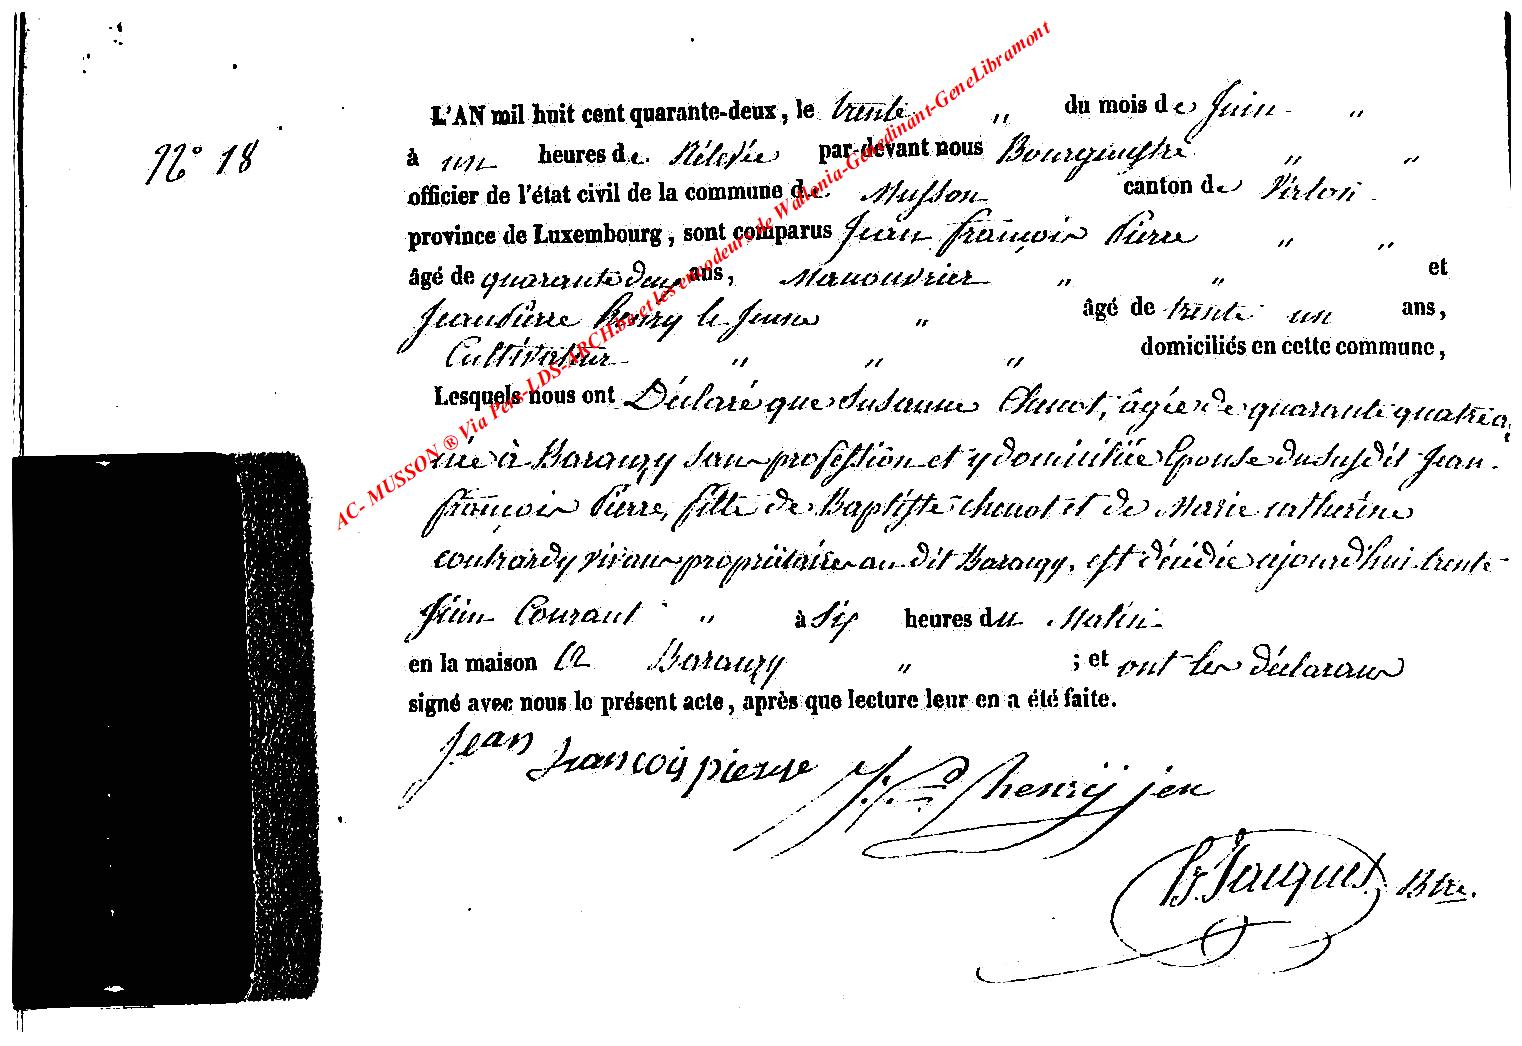 N° 18
L'AN mil huit cent quarante-deux, le trente " du mois de Juin "
à un heures de Rélevée par-devant nous Bourguestre " "
officier de l'état civil de la commune de Musson canton de Virton
province de Luxembourg, sont comparus Jean françois Pierre " "
âgé de quarante deux ans, Manouvrier " " et
Jean Pierre Henry le Jeune " âgé de trente un ans,
Cultivateur " " " domiciliés en cette commune,
Lesquels nous ont Déclaré que Susanne Chenot, âgée de quarante quatre
née à Baranzy sans profession et y domiciliée Epouse du susdit Jean
françois Pierre, fille de Baptiste chenot et de Marie catherine
contrardy vivans propriétaires au dit Baranzy, est décédée ajourd'hui trente
Juin Courant " à Six heures du Matin
en la maison a Baranzy " ; et ont les déclarans
signé avec nous le présent acte, après que lecture leur en a été faite.
Jean francois pierre
J. P. henry jeu
Jacques Btre.
AC- MUSSON ® Via Pers-LDS-ARCH.be et les encodeurs de Wallonia-Genedinant-GeneLibramont